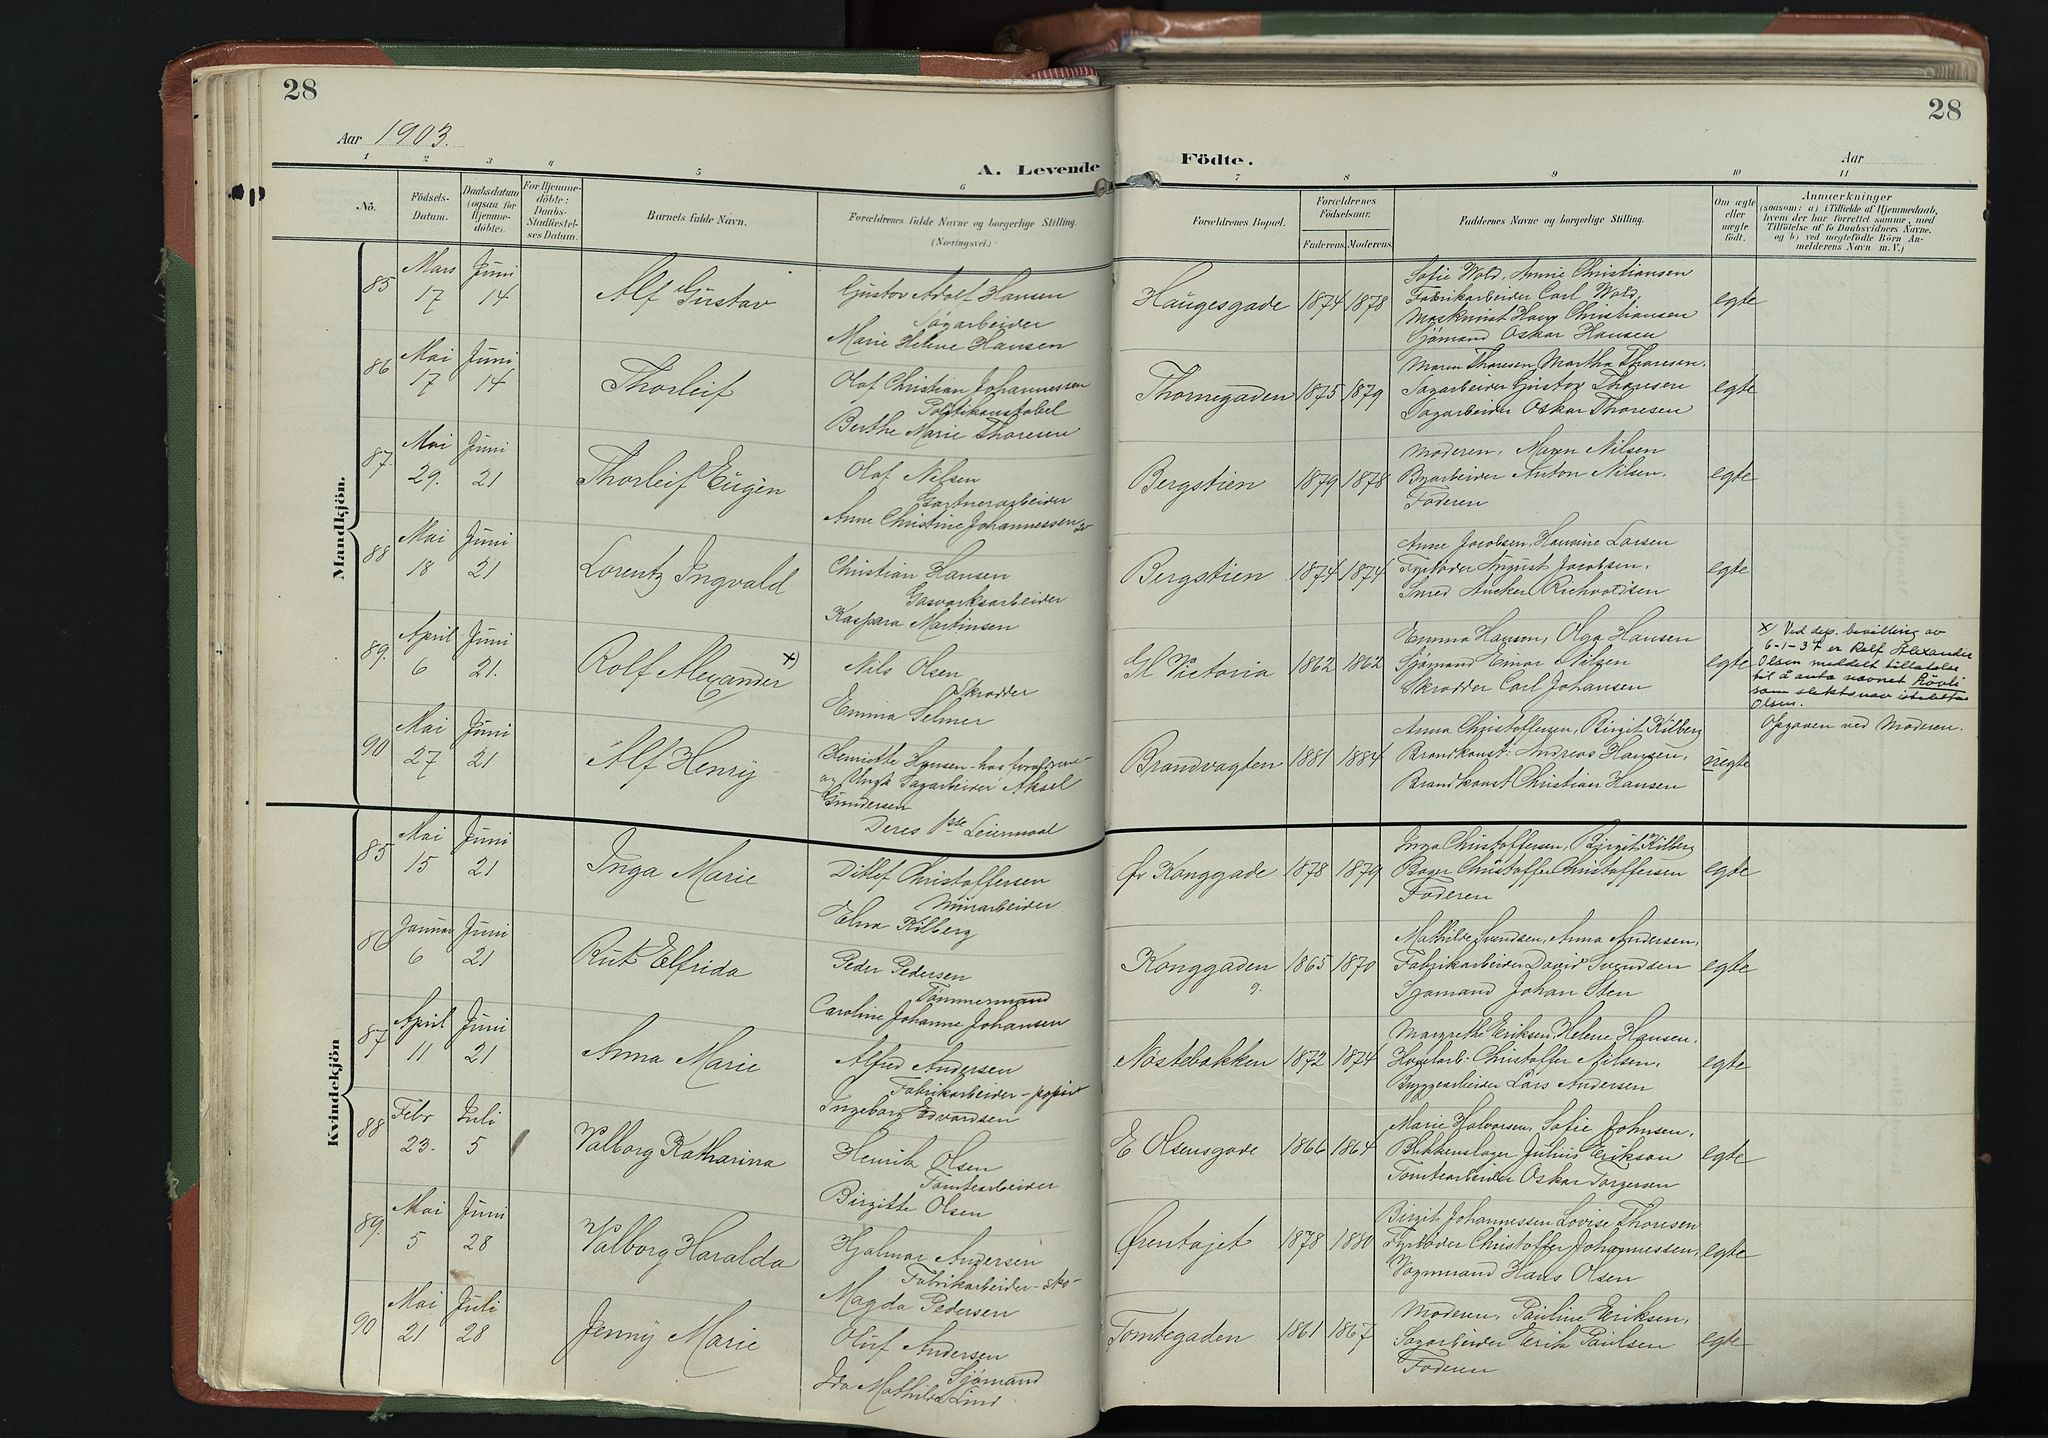 28
28
Aar 1903.
Aar
A. Levende
Födte.
1 2 3 4 5 6 7 8 9 10 11
Nö.
Födsels-
Datum.
Daabsdatum
(ogsaa for
Hjemme-
döbte).
For Hjemme-
döbte:
Daabs-
Stadfæstel-
ses Datum.
Barnets fulde Navn.
Forældrenes fulde Navne og borgerlige Stilling.
(Næringsvei.)
Forældrenes Bopæl.
Forældrenes
Födselsaar.
Faderens. Moderens.
Faddernes Navne og borgerlige Stilling.
Om ægte
eller
uægte
födt.
Anmærkninger
(saasom: a) i Tilfælde af Hjemmedaab,
hvem der har forrettet samme, med
Tilföielse af to Daabsvidners Navne,
og b) ved uægtefödte Börn An-
melderens Navn m. V.)
Mandkjön.
85 Mars 17 Juni 14 Alf Gustav
Gustav Adolf Hansen
Sagarbeider
Marie Helene Hansen
Haugesgade 1874 1878
Sofie Wold, Annie Christiansen
Fabrikarbeider Carl Wold,
Maskinist Hans Christiansen
Sjømand Oskar Hansen
egte
86 Mai 17 Juni 14 Thorleif
Olaf Christian Johannessen
Politikonstabel
Berthe Marie Thoresen
Thornegaden 1875 1879
Maren Thoresen, Martha Thoresen.
Sagarbeider Gustav Thoresen
Sagarbeider Oskar Thoresen
egte
87. Mai 29. Juni 21 Thorleif Eugen
Olaf Nilsen
Gartnerarbeider
Anne Christine Johannessen
Bergstien 1879 1878
Moderen, Maren Nilsen
Byarbeider Anton Nilsen.
Faderen
egte
88 Mai 18 Juni 21 Lorentz Ingvald
Christian Hansen
Gasværksarbeider
Kaspara Martinsen
Bergstien. 1874 1874
Anne Jacobsen, Hansine Larsen
Fyrbøder August Jacobsen,
Smed Anker Richvoldsen
egte
89. April 6 Juni 21. Rolf Alexander x)
Nils Olsen
Skrædder
Emma Selmer
Gl Victoria 1862 1862
Emma Hansen, Olga Hansen
Sjømand Einar Nilsen
Skrædder Carl Johansen
egte
x/ Ved dep. bevilling av
6-1-37 er Rolf Alexander
Olsen meddelt tillatelse
til å anta navnet Røvli
som slektsnavn istedetfor
Olsen.
90 Mai 27 Juni 21 Alf Henry
Henriette Hansen - hos forældrene -
og Ungk Sagarbeider Aksel
Gundersen
Deres 1ste Leiermaal
Brandvagten 1881 1884
Anna Christoffersen, Birgit Kilberg
Brandkonst: Andreas Hansen,
Brandkonst Christian Hansen
uegte
Opgaven ved Moderen.
Kvindekjön
85 Mai 15 Juni 21 Inga Marie
Ditlef Christoffersen
Murarbeider
Elna Kilberg
Øv Konggade 1878 1879
Inga Christoffersen, Birgit Kilberg
Bager Christoffer Christoffersen
Faderen
egte
86 Januar 6 Juni 21 Rut Elfrida
Peder Pedersen
Tømmermand
Caroline Johanne Johansen
Konggaden 9. 1865 1870
Mathilde Svendsen, Anna Andersen,
Fabrikarbeider David Svendsen
Sjømand Johan Sten
egte
87 April 11 Juni 21 Anna Marie
Alfred Andersen
Fabrikarbeider - papir
Ingeborg Edvardsen
Nøstebakken 1872 1874
Margrethe Eriksen, Helene Hansen,
Høvlarb. Christoffer Nilsen,
Byggearbeider Lars Andersen
egte
88 Febr 23. Juli 5 Valborg Katharina
Henrik Olsen
Tomtearbeider
Birgitte Olsen
E Olsensgade 1866 1864
Marie Halvorsen, Sofie Johnsen,
Blikkenslager Julius Erikson
Tomtearbeider Oskar Torgersen
egte
89. Mai 5 Juni 28 Valborg Haralda
Hjalmar Andersen
Fabrikarbeider - sko -
Magda Pedersen
Ørentajet 1878 1880
Birgit Johannessen Lovise Thoresen
Fyrbøder Christoffer Johannessen,
Vognmand Hans Olsen
egte
90 Mai 21 Juli 28 Jenny Marie
Oluf Andersen
Sjømand
Ida Mathilde Lind
Tomtegaden 1861 1867
Moderen, Pauline Eriksen,
Sagarbeider Erik Paulsen
Faderen
egte